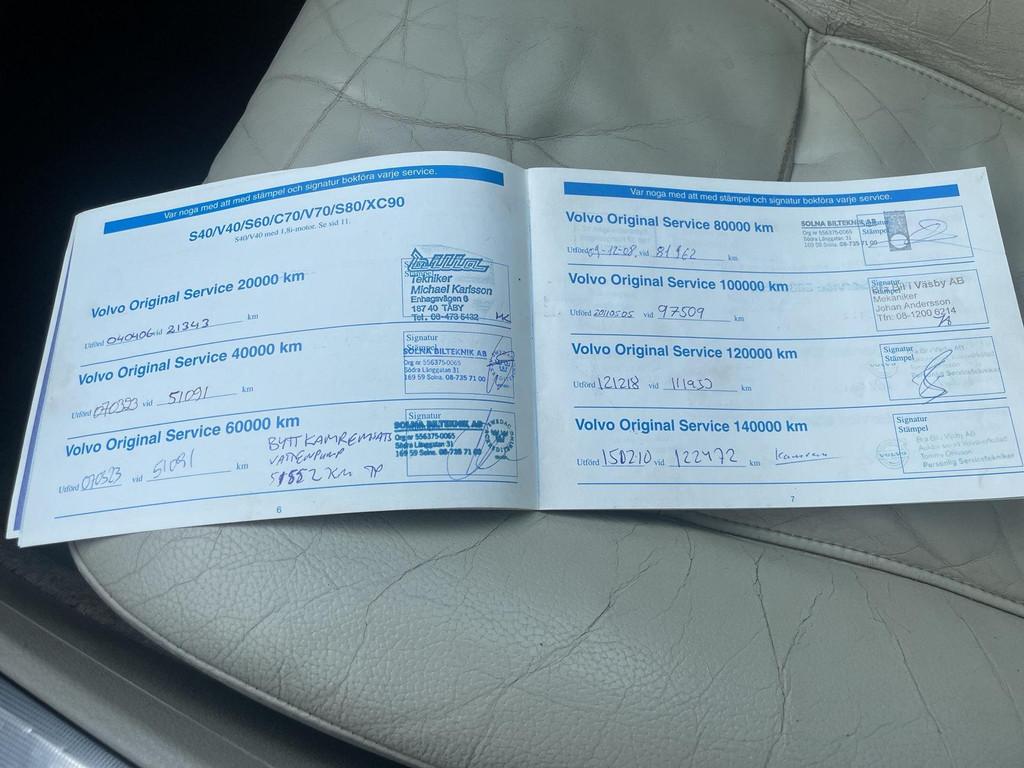 Var noga med att med stämpel och signatur bokföra varje service.
S40/V40/S60/C70/V70/S80/XC90
S40/V40 med 1,8i-motor. Se vid 11.
Volvo Original Service 20000 km
Utförd 040406 vid 21343 km
bilia
Tekniker
Michael Karlsson
Enhagsvägen 6
187 40 TÄBY
Tel. 08-473 5432
Volvo Original Service 40000 km
Utförd 070323 vid 51091 km
Signatur
Stämpel
SOLNA BILTEKNIK AB
Org nr 556375-0065
Södra Långgatan 31
169 59 Solna. 08-735 71 00
Volvo Original Service 60000 km
Utförd 070323 vid 51091 km
BYTT KAMREM
VATTENPUMP
51552 KM
Signatur
SOLNA BILTEKNIK AB
Org nr 556375-0065
Södra Långgatan 31
169 59 Solna. 08-735 71 00
6
Var noga med att med stämpel och signatur bokföra varje service.
Volvo Original Service 80000 km
Utförd 09-12-08 vid 81962 km
SOLNA BILTEKNIK
Org nr 556375-0065
Södra Långgatan 31
169 59 Solna. 08-735 71 00
Signatur
Stämpel
Volvo Original Service 100000 km
Utförd 20110505 vid 97509 km
Signatur
Bra Bil i Väsby AB
Mekaniker
Johan Andersson
Tfn: 08-1200 6214
Volvo Original Service 120000 km
Utförd 121218 vid 111933 km
Signatur
Stämpel
Volvo Original Service 140000 km
Utförd 150210 vid 122472 km Kamrem
Signatur
Stämpel
Bra Bil i Väsby AB
Tommy Ohlsson
Personlig Servicetekniker
VOLVO
7